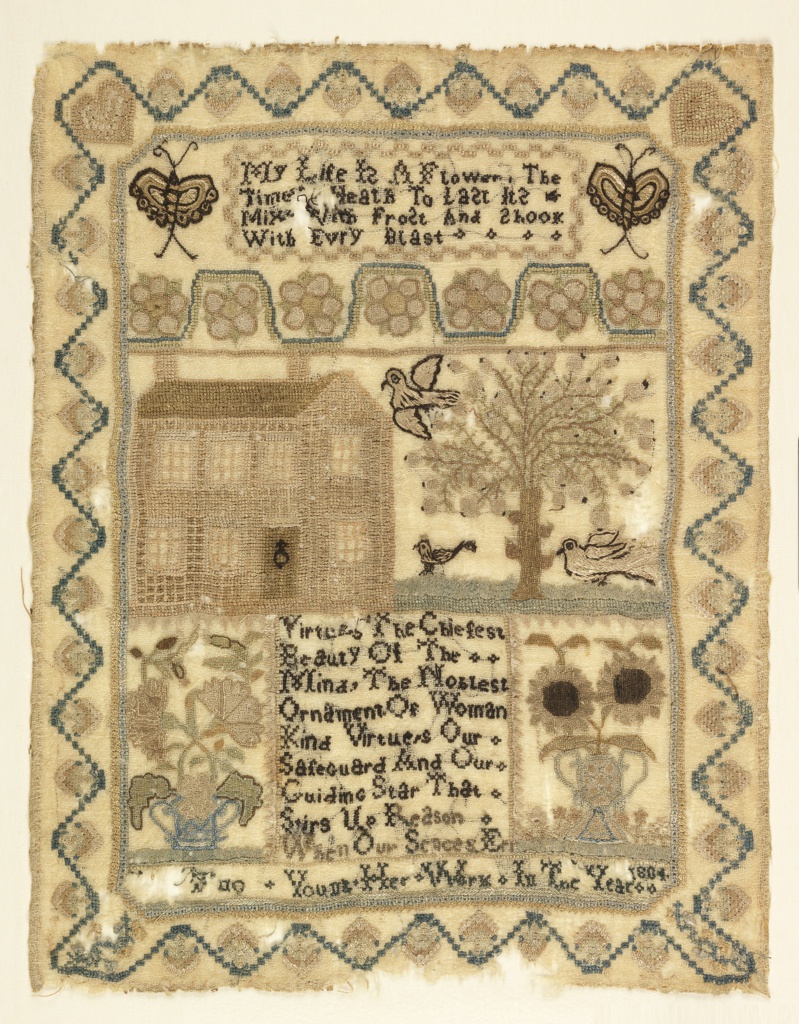 My Life Is A Flower, The
Time It Heath To Last Its
Mixt With Frost And Shook
With Evry Blast
Virtues The Chiefest
Beauty Of The
Mind, The Noblest
Ornament Of Woman
Kind Virtuers Our
Safeguard And Our
Guiding Star That
Stirs Up Reason
When Our Sences Er
Young Her Work In The Year 1804